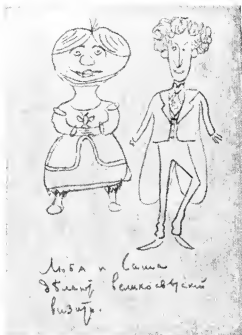 Люба и Саша
дѣлаютъ великосвѣтскій
визитъ.